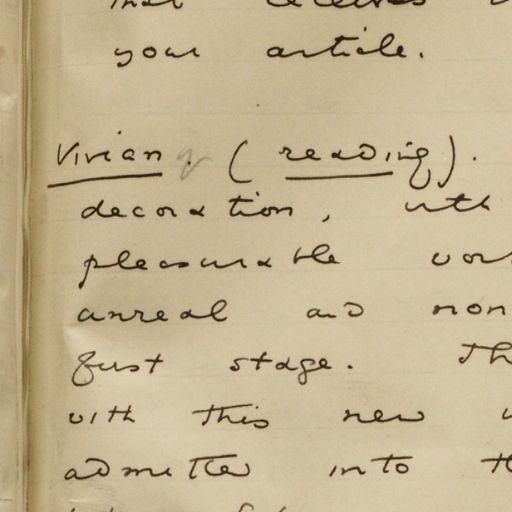 your article.
Vivian. (reading).
decoration, with
pleasurable
unreal and non
first stage. Th
with this new
admitted into th